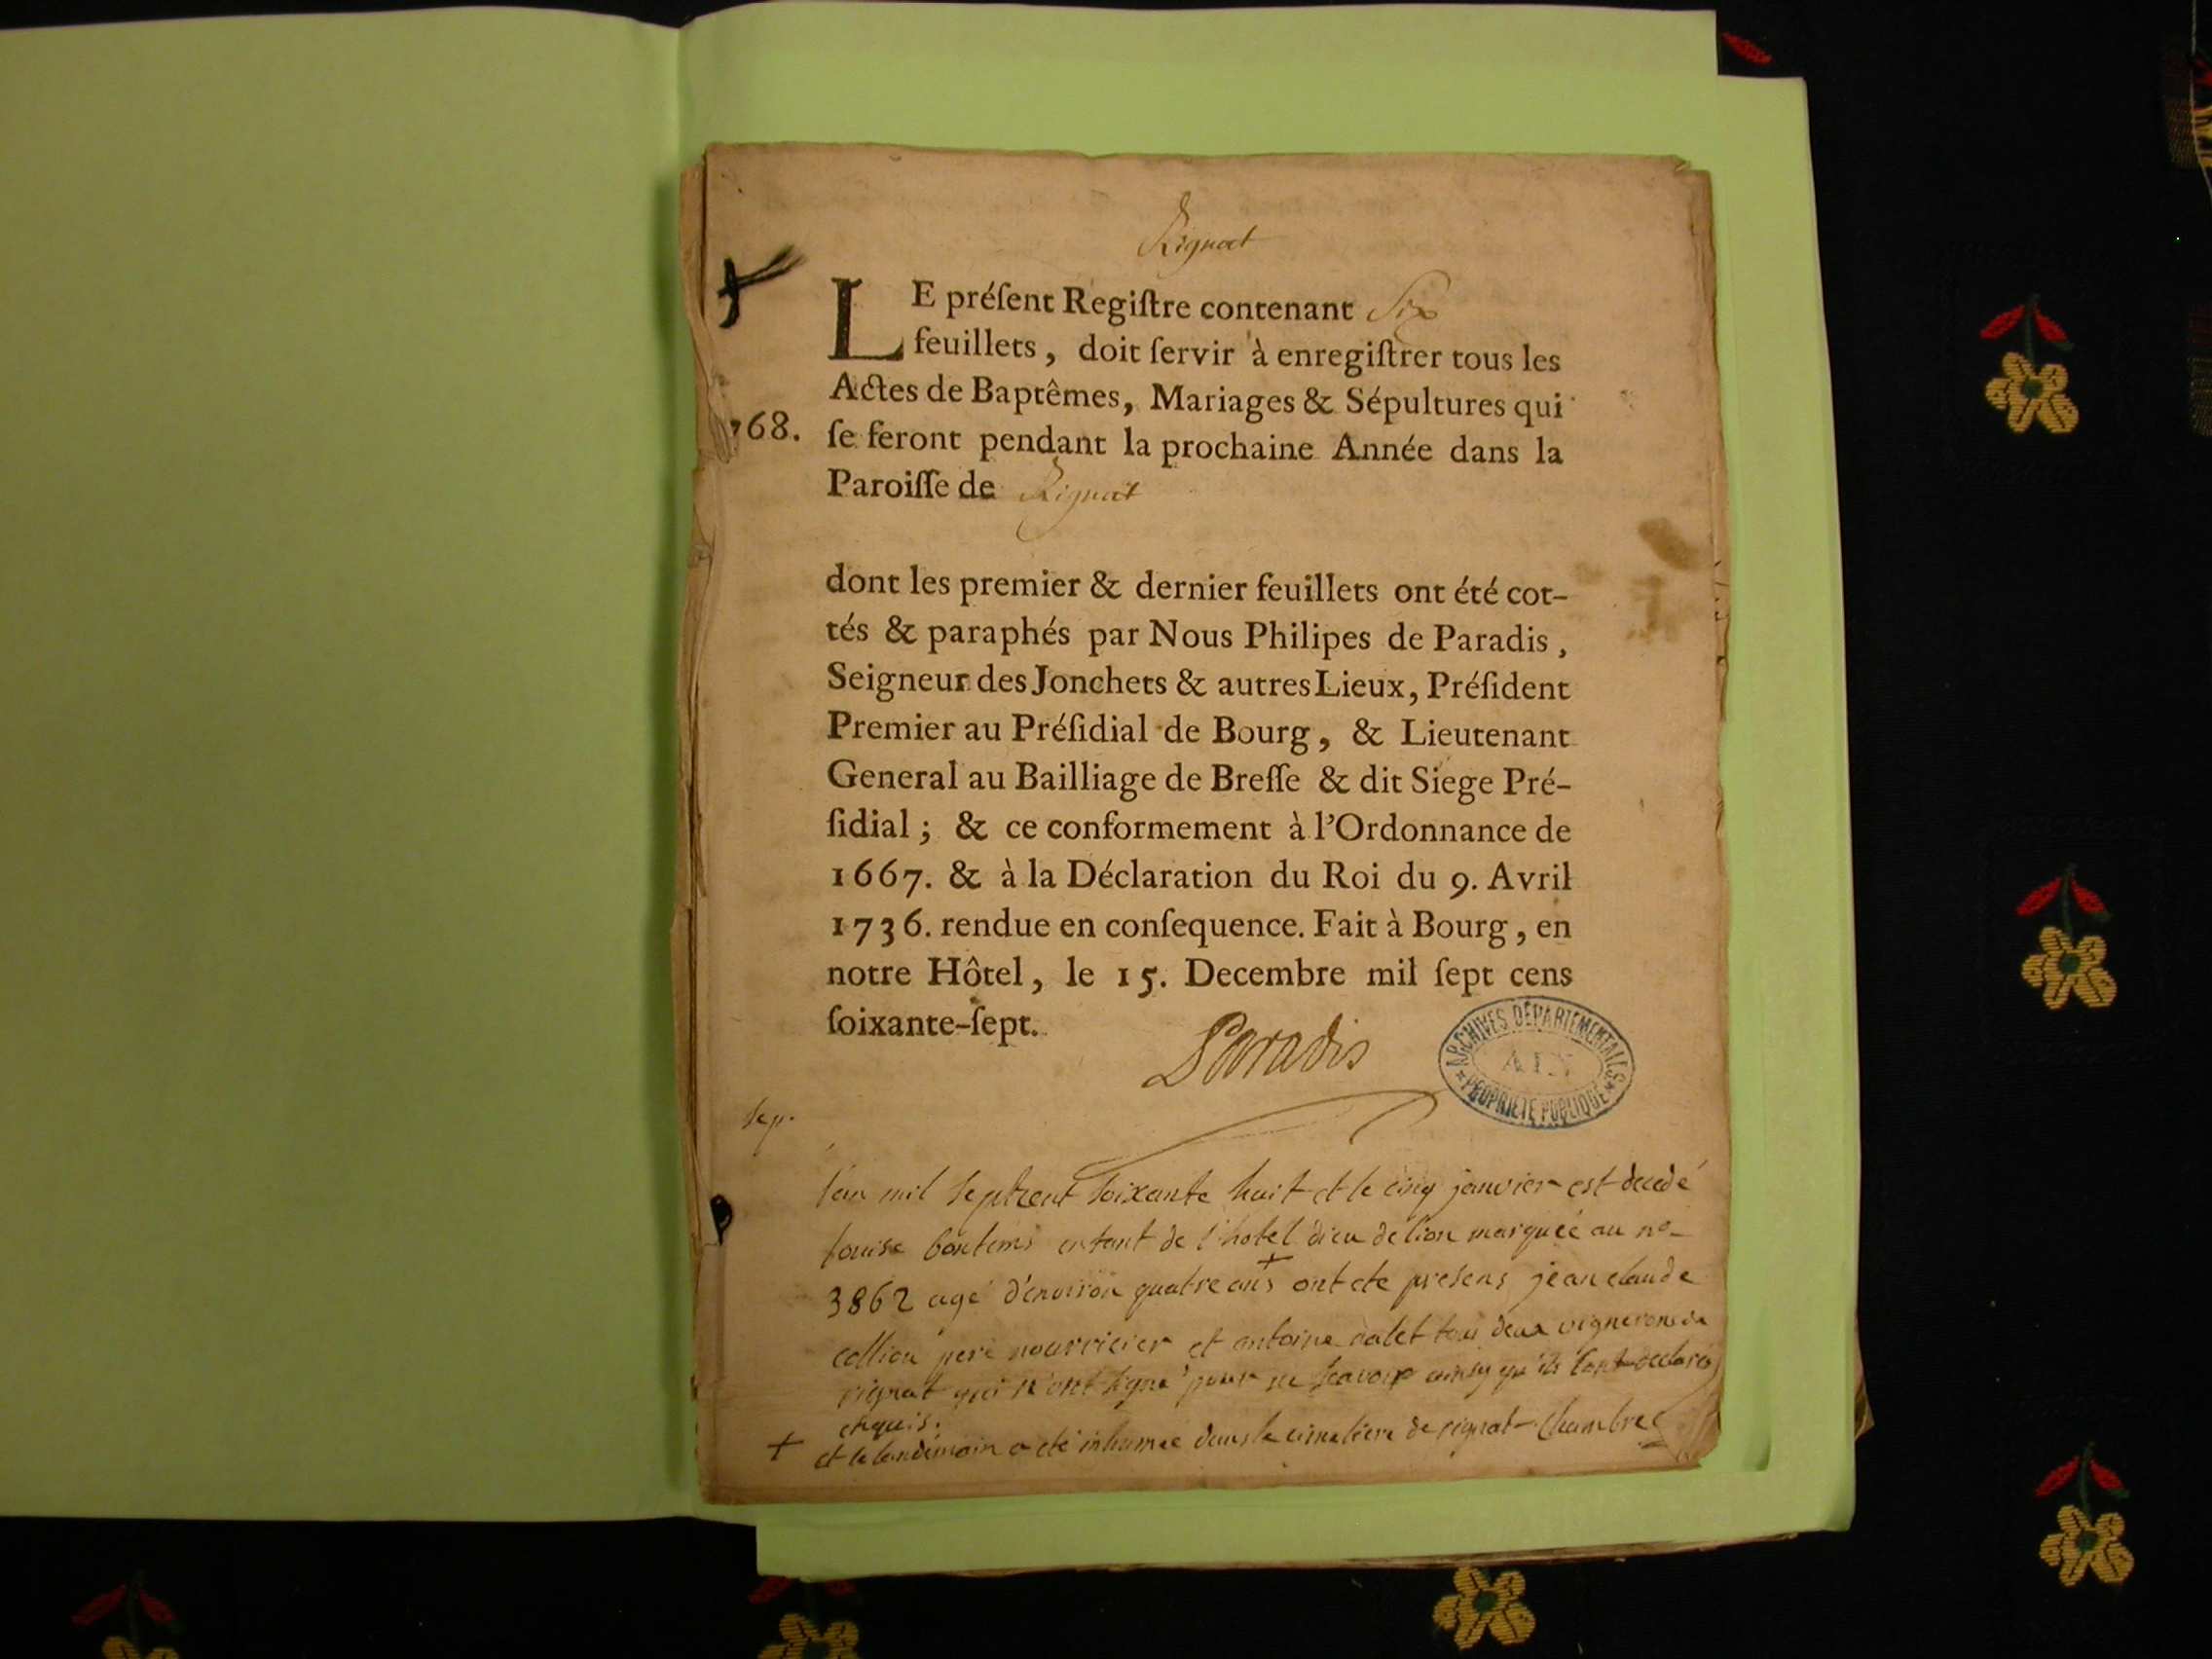 Rignat
LE préſent Regiſtre contenant Six
feuillets, doit ſervir à enregiſtrer tous les
Actes de Baptêmes, Mariages & Sépultures qui
768.
ſe feront pendant la prochaine Année dans la
Paroiſſe de Rignat
dont les premier & dernier feuillets ont été cot-
tés & paraphés par Nous Philipes de Paradis,
Seigneur des Jonchets & autres Lieux, Préſident
Premier au Préſidial de Bourg, & Lieutenant
General au Bailliage de Breſſe & dit Siege Pré-
ſidial; & ce conformement à l'Ordonnance de
1667. & à la Déclaration du Roi du 9. Avril
1736. rendue en conſequence. Fait à Bourg, en
notre Hôtel, le 15. Decembre mil ſept cens
ſoixante-ſept.
Paradis
ARCHIVES DÉPARTEMENTALES
AIN
PROPRIÉTÉ PUBLIQUE
Sep.
l'an mil septcent soixante huit et le cinq janvier est decedé
louise bontems enfant de l'hotel dieu de lion marquée au no
3862 agé d'environ quatre ans + ont ete presens jean claude
collion pere nourricier et antoine valet tous deux vignerons de
rignat qui n'ont signé pour ne scavoir ainsy qu'ils l'ont declaré
enquis.
+ et le landemain a eté inhumée dans le cimetiere de rignat Chambre